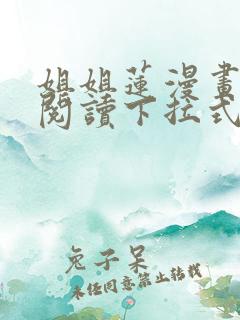 姐姐蓮漫畫
閱讀下拉式
兔子呆
未任同意禁止转载